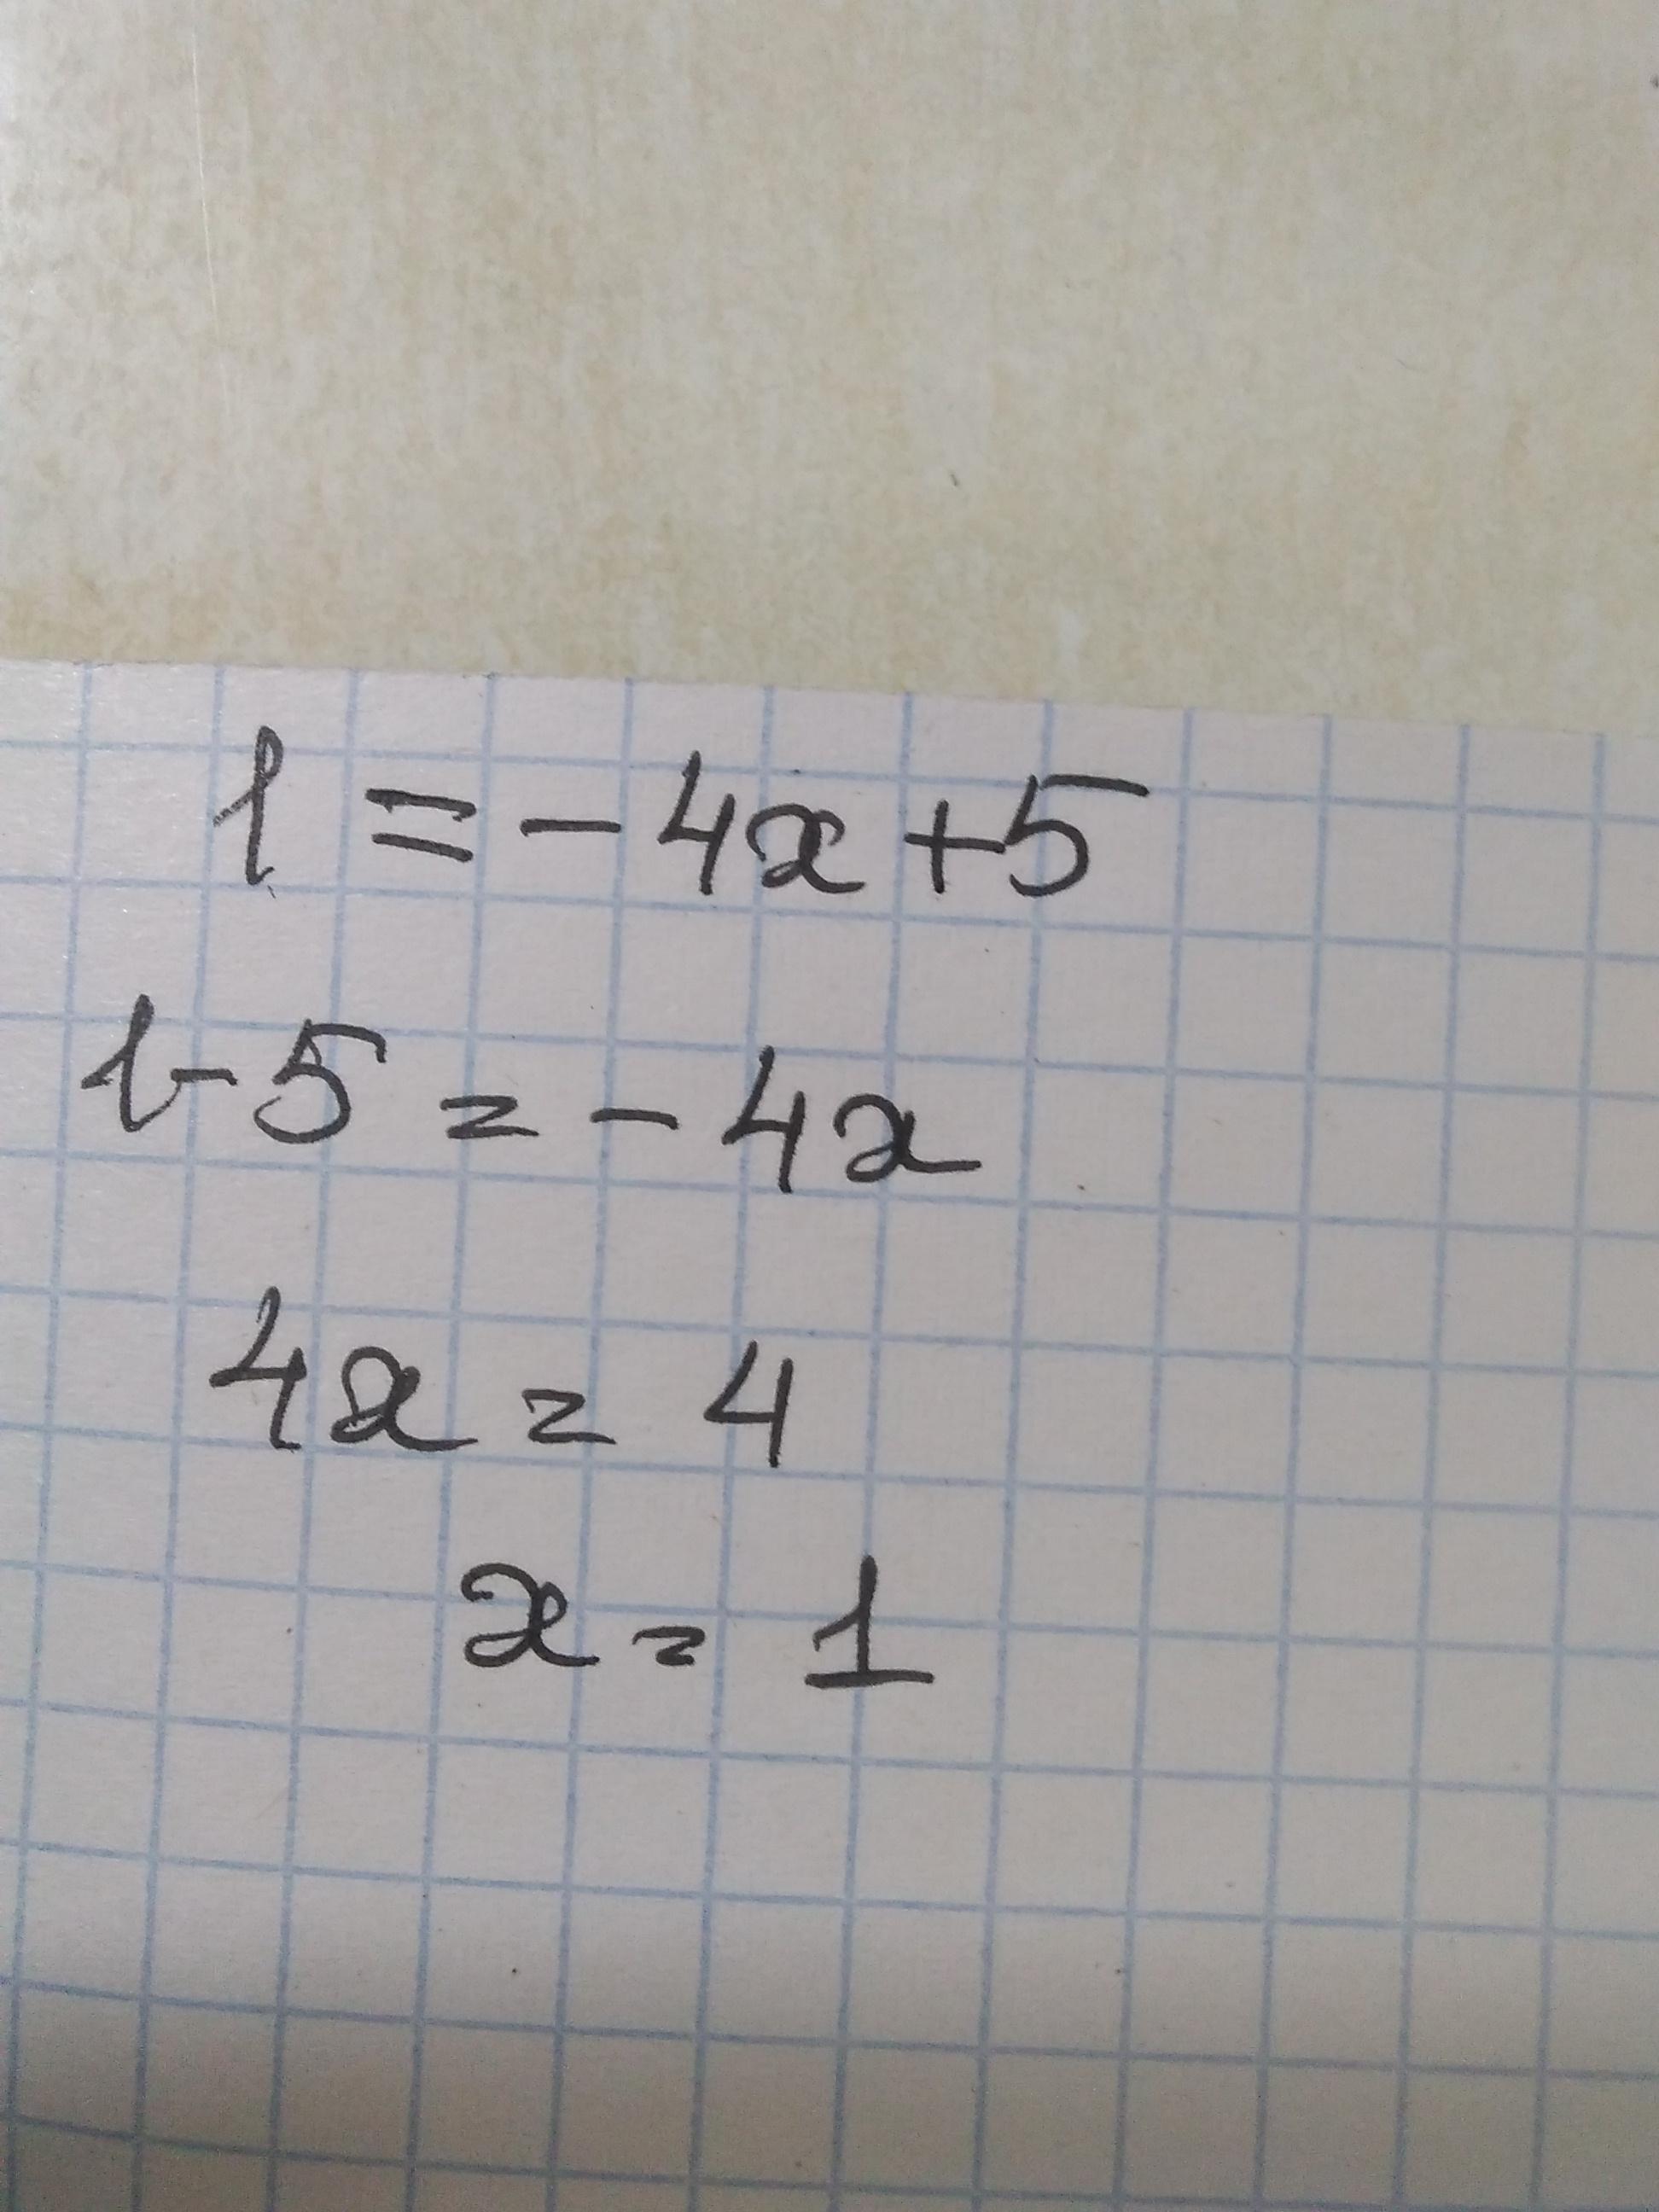 1 = - 4x + 5
1 - 5 = - 4x
4x = 4
x = 1